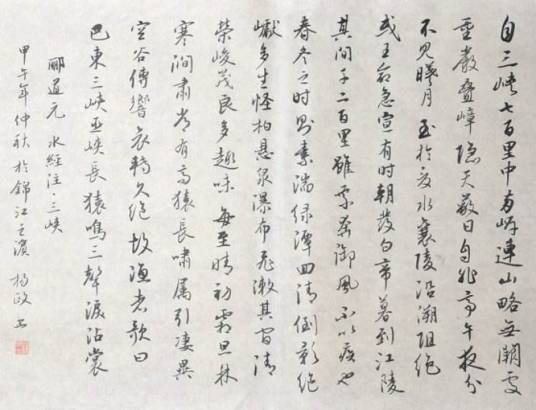 自三峡七百里中两岸連山略無闕處
重巖叠嶂隐天蔽日自非亭午夜分
不見曦月至於夏水襄陵沿溯阻绝
或王命急宣有时朝發白帝暮到江陵
其间千二百里雖乘奔御風不以疾也
春冬之时则素湍绿潭回清倒影绝
巘多生怪柏悬泉瀑布飞漱其间清
荣峻茂良多趣味每至晴初霜旦林
寒涧肃常有高猿長嘯属引凄異
空谷傳響哀轉久绝故渔者歌曰
巴東三峡巫峡長猿鳴三聲淚沾裳
酈道元 水經注·三峡
甲午年仲秋於錦江之濱 楊政书